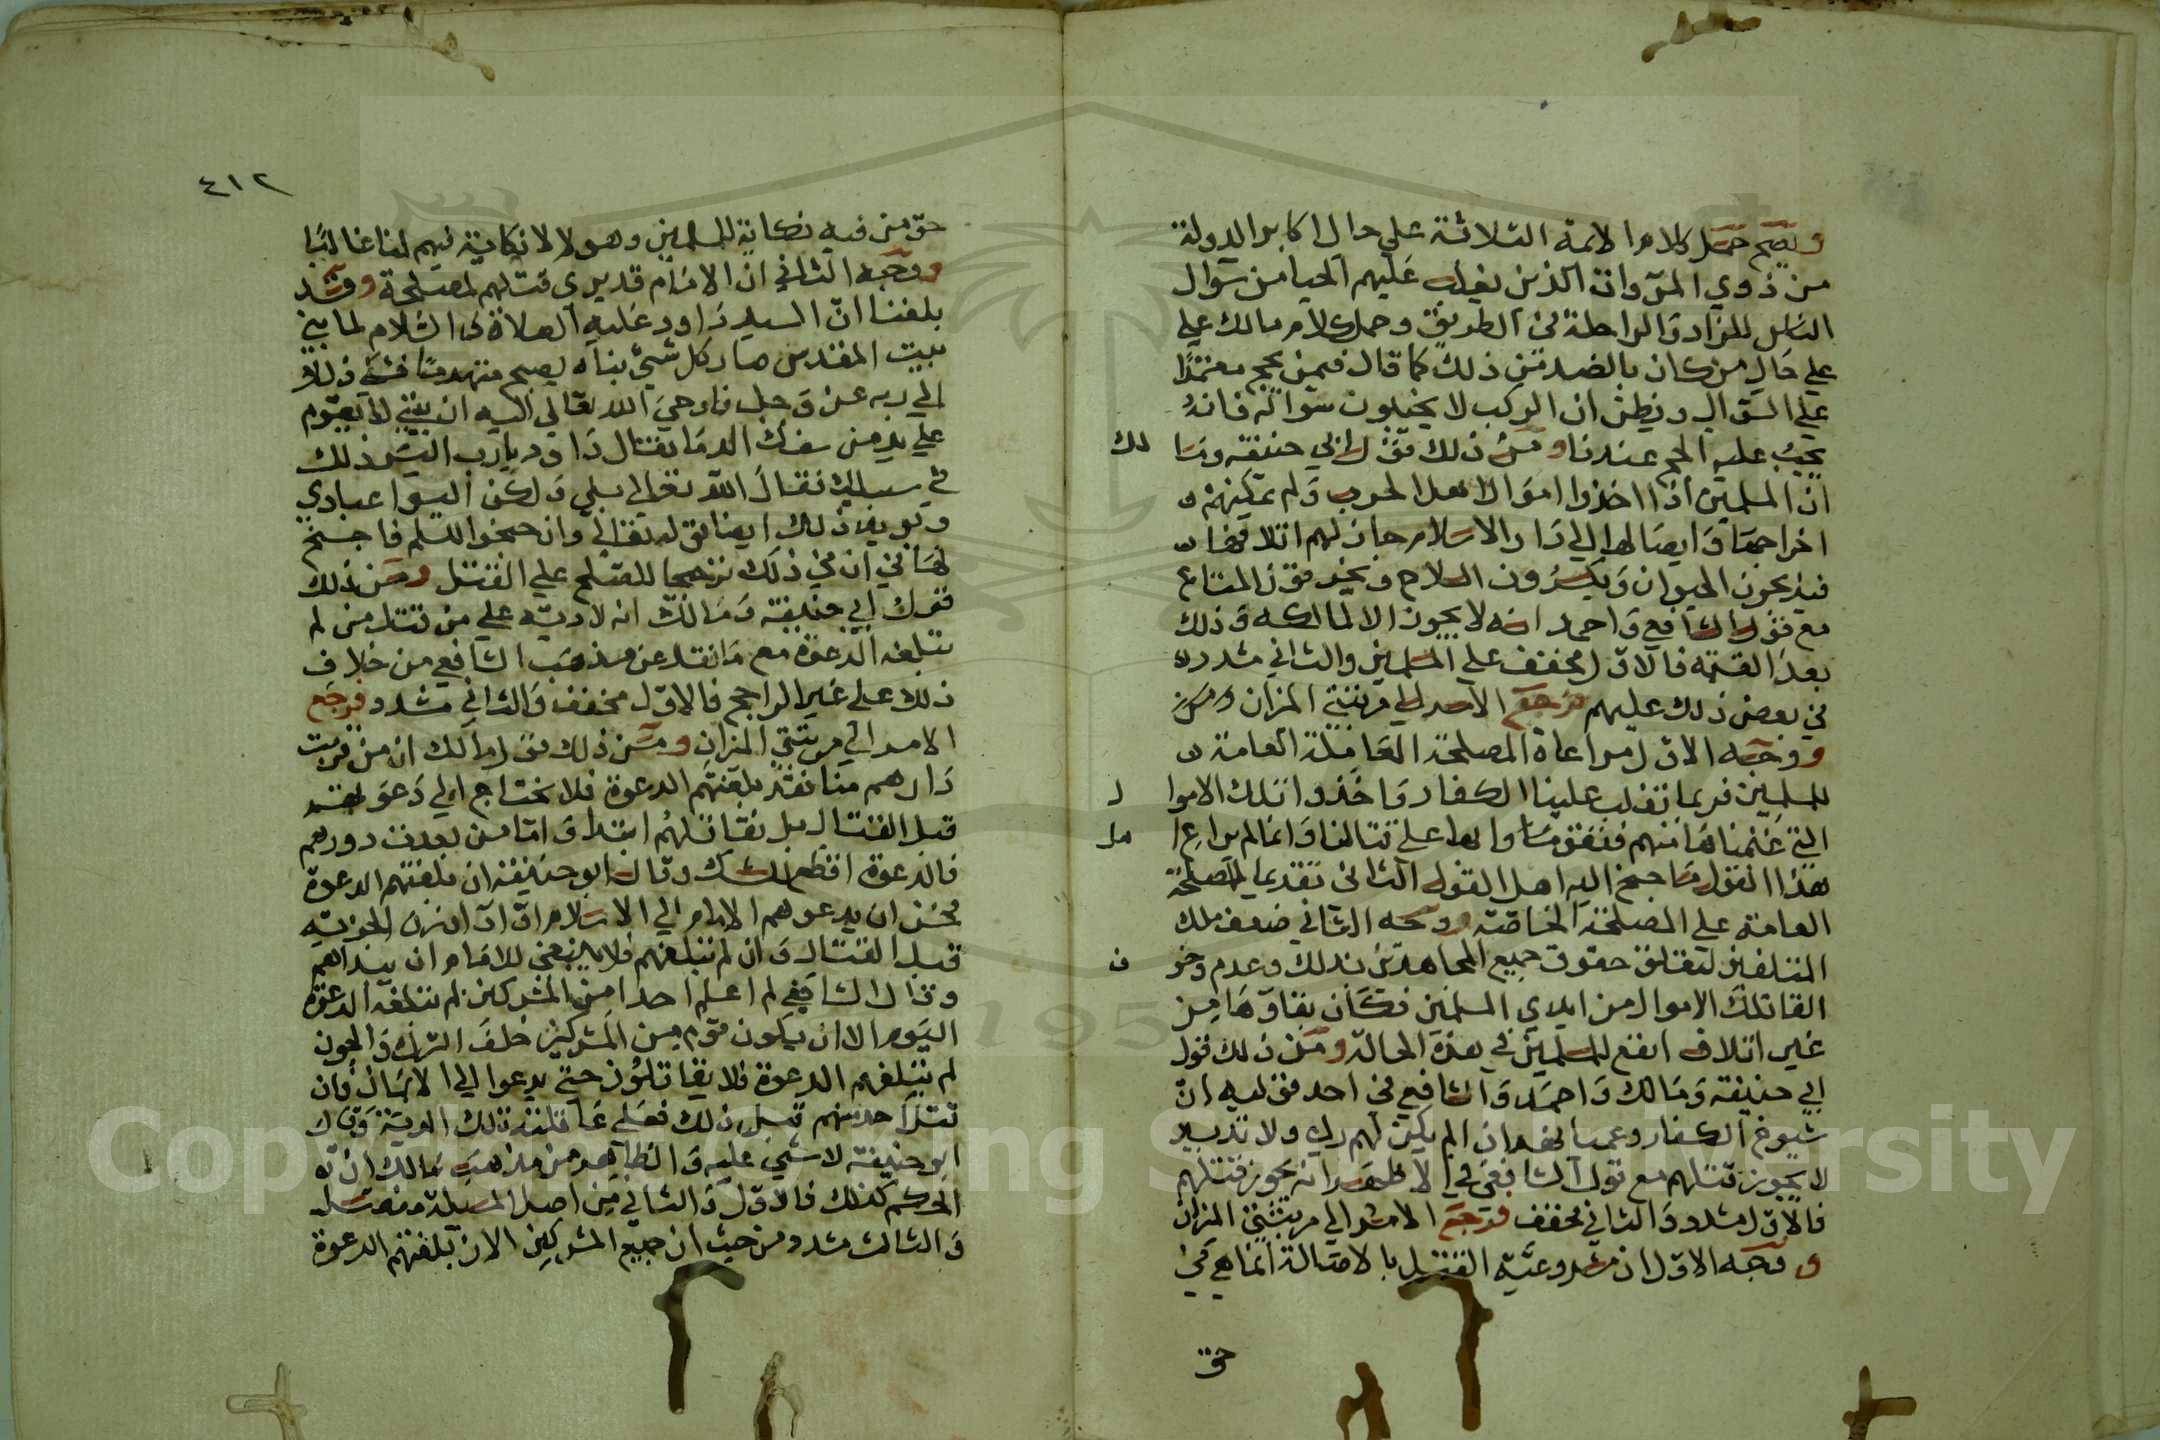 ويصح حمل كلام الائمة الثلاثة علي حال اكابر الدولة
من ذوي المروات الذين يغلب عليهم الحيا من سوال
الناس للزاد والراحلة في الطريق وحمل كلام مالك علي
علي حال من كان بالضد من ذلك كما قال فيمن يحج معتمدًا
علي السوال ويظن ان الركب لا يخيبون سواله فانه
يجب عليه الحج عندنا ومن ذلك قول ابي حنيفه ومالك
ان المسلمين اذا اخذوا اموال اهل الحرب ولم يمكنهم
اخراجها وايصالها الي دار الاسلام جاز لهم اتلافها
فيذبحون الحيوان ويكسرون السلاح ويحرقون المتاع
مع قول الشافعي واحمد انه لا يجوز الا لمالكه وذلك
بعد القسمة فالاول مخفف علي المسلمين والثاني مشدد
في بعض ذلك عليهم فرجع الامر الي مرتبتي الميزان
ووجه الاول مراعاة المصلحة العامة
للمسلمين فربما تغلب علينا الكفار واخذوا تلك الاموال
التي غنمناها منهم فتقووا بها علي قتالنا وانما لم يراع اهل
هذا القول ما جنح اليه اهل القول الثاني تقديما للمصلحة
العامة علي المصلحة الخاصة ووجه الثاني ضعف ملك
المتلفين لتعلق حقوق جميع المجاهدين بذلك وعدم وخوف
القا تلك الاموال من ايدي المسلمين فكان بقاوها من
غير اتلاف انفع للمسلمين في هذه الحالة ومن ذلك قول
ابي حنيفة ومالك واحمد والشافعي في احد قوليه ان
شيوخ الكفار وعميانهم اذا لم يكن لهم راي ولا تدبير
لا يجوز قتلهم مع قول الشافعي في الاظهر انه يجوز قتلهم
فالاول مشدد والثاني مخفف فرجع الامر الي مرتبتي الميزان
ووجه الاول ان مشروعية القتل بالاصالة انما هي في
حق
٤١٢
حق من فيه نكاية للمسلمين وهولا لا نكاية فيهم لنا غالبًا
ووجه الثاني ان الامام قد يري قتلهم لمصلحة وقد
بلغنا ان السيد داود عليه الصلاة والسلام لما بني
بيت المقدس صار كل شي بناه يصبح منهدما فشكي ذلك
الي ربه عز وجل فاوحي الله تعالي اليه ان بيتي لا يقوم
علي يد من سفك الدما فقال داود يارب اليس ذلك
في سبيلك فقال الله تعالي بلي ولكن اليسوا عبادي
ويويد ذلك ايضا قوله تعالي وان جنحوا للسلم فاجنح
لها فان في ذلك ترجيحا للصلح علي القتل ومن ذلك
قول ابي حنيفة ومالك انه لا دية علي من قتل من لم
تبلغه الدعوة مع ما نقل عن مذهب الشافعي من خلاف
ذلك علي غير الراجح فالاول مخفف والثاني مشدد فرجع
الامر الي مرتبتي الميزان ومن ذلك قول مالك ان من قربت
دارهم منا فقد بلغتهم الدعوة فلا يحتاج الي دعوتهم
قبل القتال بل نقاتلهم ابتدا واما من بعدت دورهم
فالدعوة اقطع للشك وقال ابو حنيفة ان بلغتهم الدعوة
فحسن ان يدعوهم الامام الي الاسلام او ادا الجزية
قبل القتال وان لم تبلغهم فلا ينبغي للامام ان يبداهم
وقال الشافعي لم اعلم احدا من المشركين لم تبلغه الدعوة
اليوم الا ان يكون قوم من المشركين خلف الترك والجون
لم تبلغهم الدعوة فلا يقاتلون حتي يدعوا الي الاسلام فان
قتل احد منهم قبل ذلك فعلي عاقلته تلك الدية وقال
ابو حنيفة لا شي عليه والظاهر من مذهب مالك ان
الحكم كذلك فالاول والثاني من اصل المسيلة مفصل
والثالث مشدد من حيث ان جميع المشركين الان بلغتهم الدعوة
Copy King Saud University
195